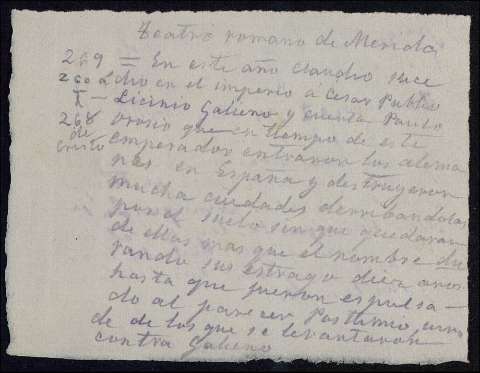 Teatro romano de Merida
269 = En este año Claudio suce
260 dio en el imperio a Cesar Publio
X - Licinio Galieno y cuenta Paulo
268 orosio que en tiempo de este
de emperador entraron los alema
Cristo nes en España y destruyeron
mucha ciudades derribandolas
por el suelo sin que quedaran
de ellas mas que el nombre du
rando sus estrago diez años
hasta que fueron espulsa-
do al parecer Postumio, uno
de de los que se levantaron
contra Galieno